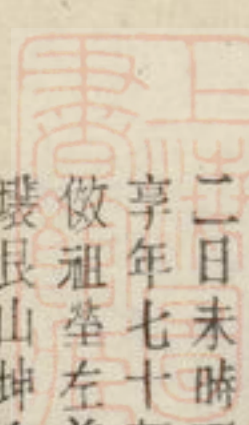 二日未時
享年七十
倣祖塋左
艮山坤